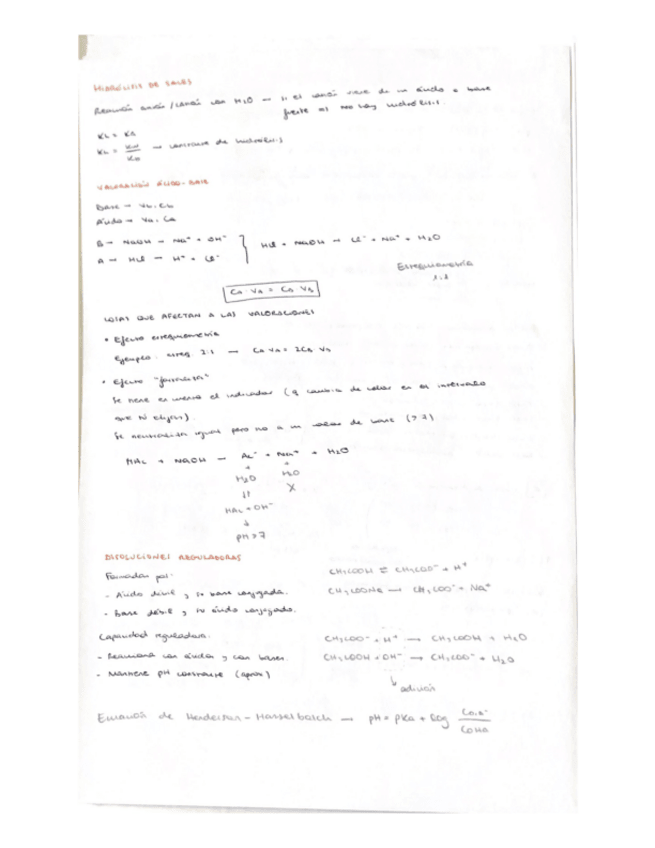 HIDRÓLISIS DE SALES
Reacción anión/catión con H2O → si el catión viene de un ácido o base
fuerte → no hay hidrólisis.
Kh = Kw → constante de hidrólisis
VALORACIÓN ÁCIDO-BASE
Base → Vb. Cb
Ácido → Va. Ca
B → NaOH → Na+ + OH-
A → HCl → H+ + Cl-
HCl + NaOH → Cl- + Na+ + H2O
Estequiometría
1:1
Ca · Va = Cb · Vb
COSAS QUE AFECTAN A LAS VALORACIONES
• Efecto estequiometría
Ejemplo: esteq. 2:1 → Ca Va = 2Cb Vb
• Efecto "fortaleza"
Se tiene en cuenta el indicador (q cambia de color en el intervalo
que tú elijas).
Se neutraliza igual pero no a un valor de (>7)
HAc + NaOH → Ac- + Na+ + H2O
+ +
H2O H2O
⇅ X
HAc + OH-
↓
pH > 7
DISOLUCIONES REGULADORAS
Formadas por:
- Ácido débil y su base conjugada.
- Base débil y su ácido conjugado.
CH3COOH ⇌ CH3COO- + H+
CH3COONa → CH3COO- + Na+
Capacidad reguladora.
- Reacciona con ácidos y con bases.
- Mantiene pH constante (aprox)
CH3COO- + H+ → CH3COOH + H2O
CH3COOH + OH- → CH3COO- + H2O
↳ adición
Ecuación de Henderson-Hasselbalch → pH = pKa + log